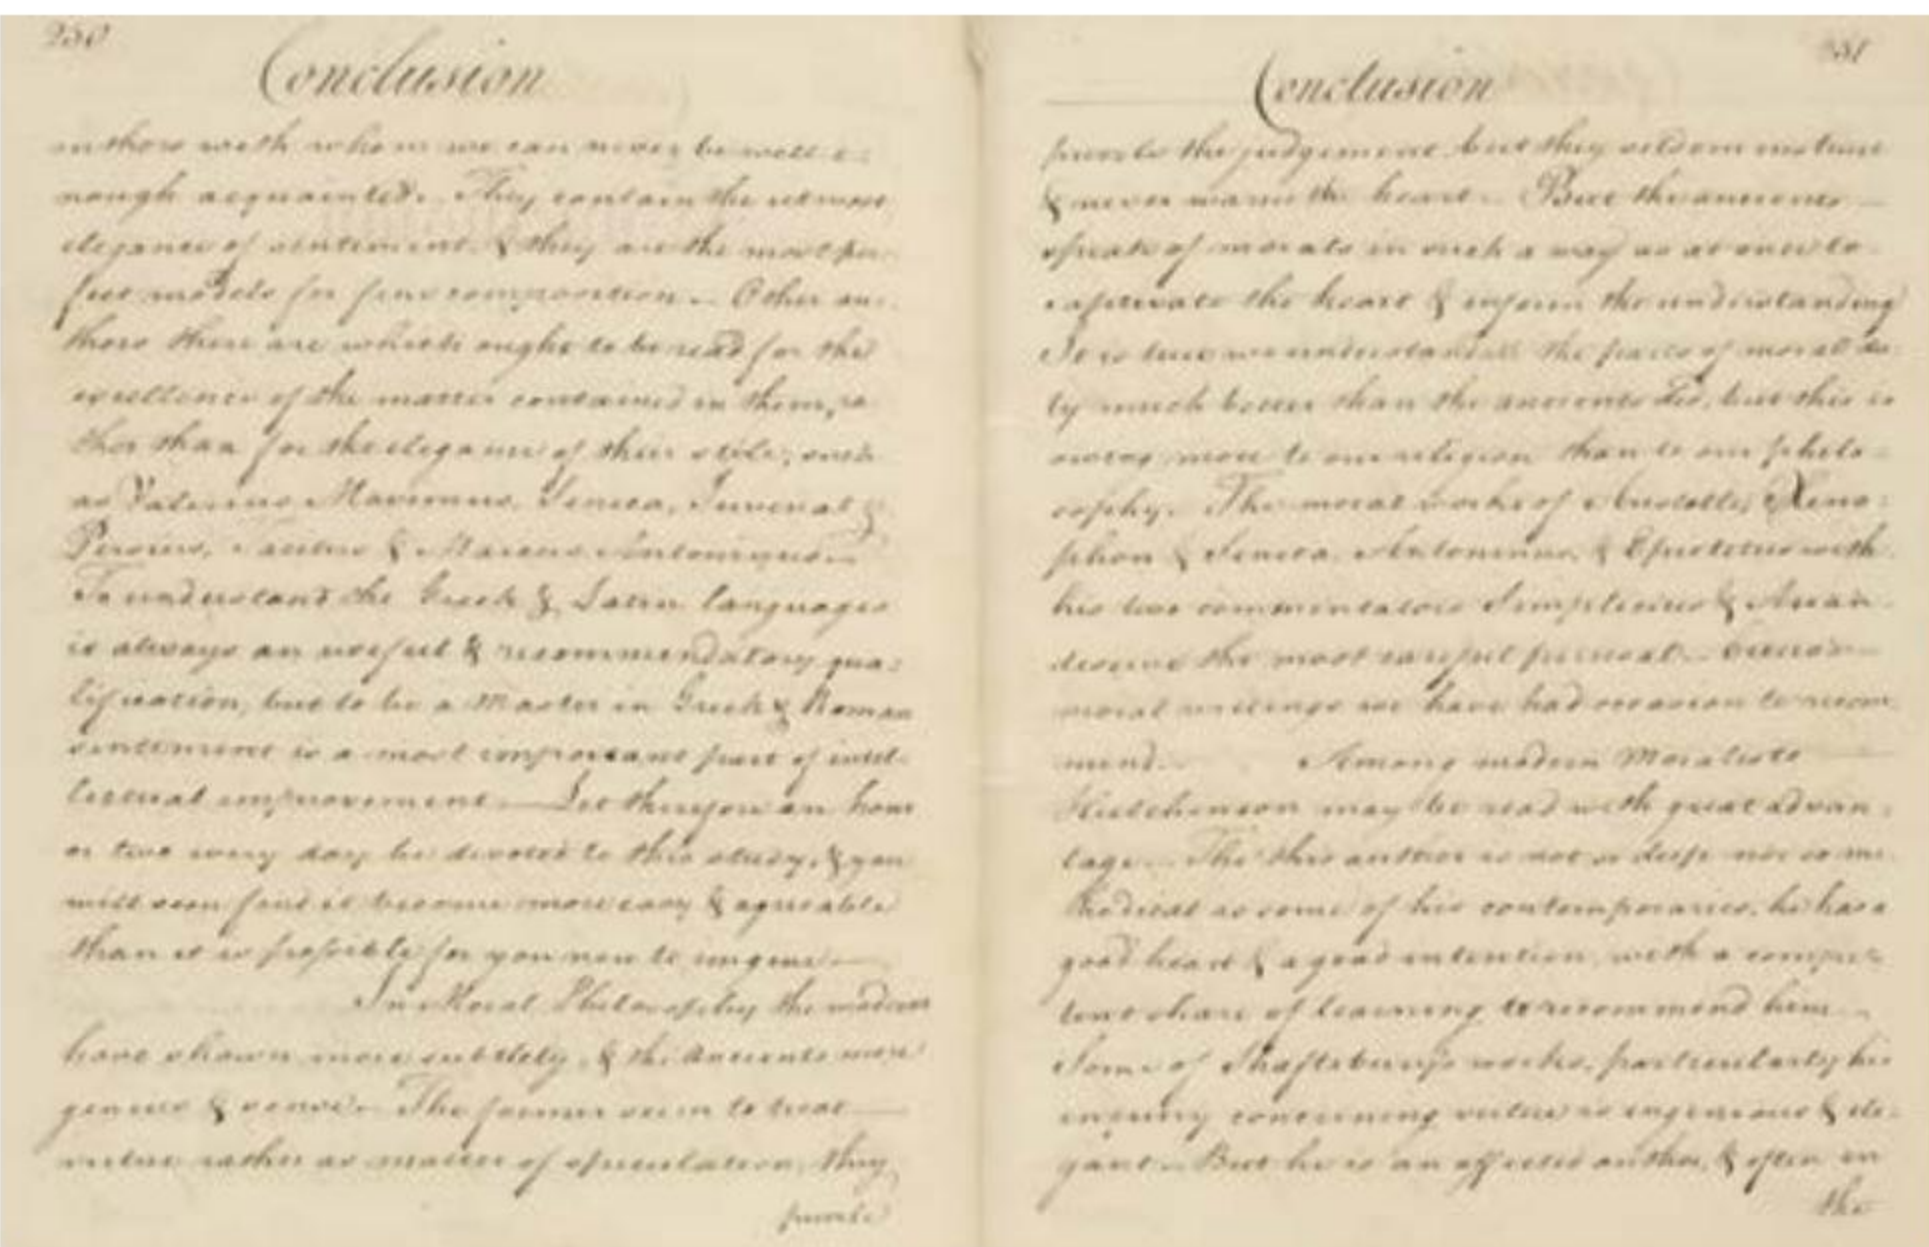 250
Conclusion
authors with whom we can never be well e=
nough acquainted. They contain the utmost
elegance of sentiment, & they are the most per=
fect models for fine composition. Other au=
thors there are which ought to be read for the
excellence of the matter contained in them, ra
ther than for the elegance of their stile, such
as Valerius Maximus, Seneca, Juvenal &
Persius, Tacitus & Marcus Antoninus.
To understand the Greek & Latin languages
is always an useful & recommendatory qua=
lification, but to be a Master in Greek & Roman
sentiment is a most important part of intel=
lectual improvement. Let therefore an hour
or two every day be devoted to this study, & you
will soon find it become more easy & agreeable
than it is possible for you now to imagine.
In Moral Philosophy the moderns
have shown more subtlety, & the Ancients more
genius & sense. The former seem to treat
virtue rather as matter of speculation, they
puzzle
251
Conclusion
puzzle the judgement, but they seldom instruct
& never warm the heart. But the ancients
speak of morals in such a way as at once to
captivate the heart & inform the understanding
It is true we understand the parts of moral du=
ty much better than the ancients did, but this is
owing more to our religion than to our philo=
sophy. The moral works of Aristotle, Xeno=
phon & Seneca, Antoninus, & Epictetus with
his two commentators Simplicius & Arrian
deserve the most careful perusal. Cicero's
moral writings we have had occasion to recom
mend. Among modern Moralists
Hutchinson may be read with great advan=
tage. Tho' this author is not so deep nor so me
thodical as some of his contemporaries, he has a
good heart & a good intention, with a compe=
tent share of learning to recommend him.
Some of Shaftsbury's works, particularly his
enquiry concerning virtue is ingenious & ele=
gant. But he is an affected author, & often in
the